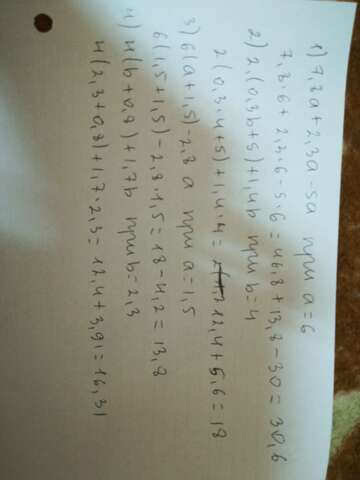 1) 7,8a + 2,3a - 5a при a = 6
7,8·6 + 2,3·6 - 5·6 = 46,8 + 13,8 - 30 = 30,6
2) 2·(0,3b + 5) + 1,4b при b = 4
2(0,3·4 + 5) + 1,4·4 = 12,4 + 5,6 = 18
3) 6(a + 1,5) - 2,8a при a = 1,5
6(1,5 + 1,5) - 2,8·1,5 = 18 - 4,2 = 13,8
4) 4(b + 0,8) + 1,7b при b = 2,3
4(2,3 + 0,8) + 1,7·2,3 = 12,4 + 3,91 = 16,31